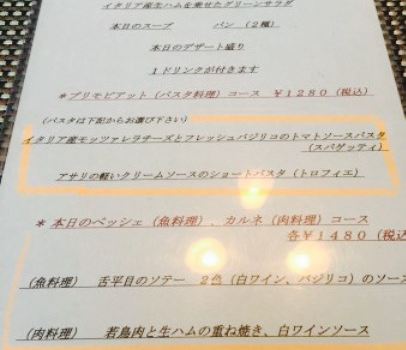 イタリア産生ハムを乗せたグリーンサラダ
本日のスープ　　パン（２種）
本日のデザート盛り
１ドリンクが付きます
＊プリモピアット（パスタ料理）コース　￥１２８０（税込）
（パスタは下記からお選び下さい）
イタリア産モッツァレラチーズとフレッシュバジリコのトマトソースパスタ
（スパゲッティ）
アサリの軽いクリームソースのショートパスタ（トロフィエ）
＊本日のペッシェ（魚料理）、カルネ（肉料理）コース
各￥１４８０（税込
（魚料理）　舌平目のソテー　２色（白ワイン、バジリコ）のソー
（肉料理）　若鳥肉と生ハムの重ね焼き、白ワインソース